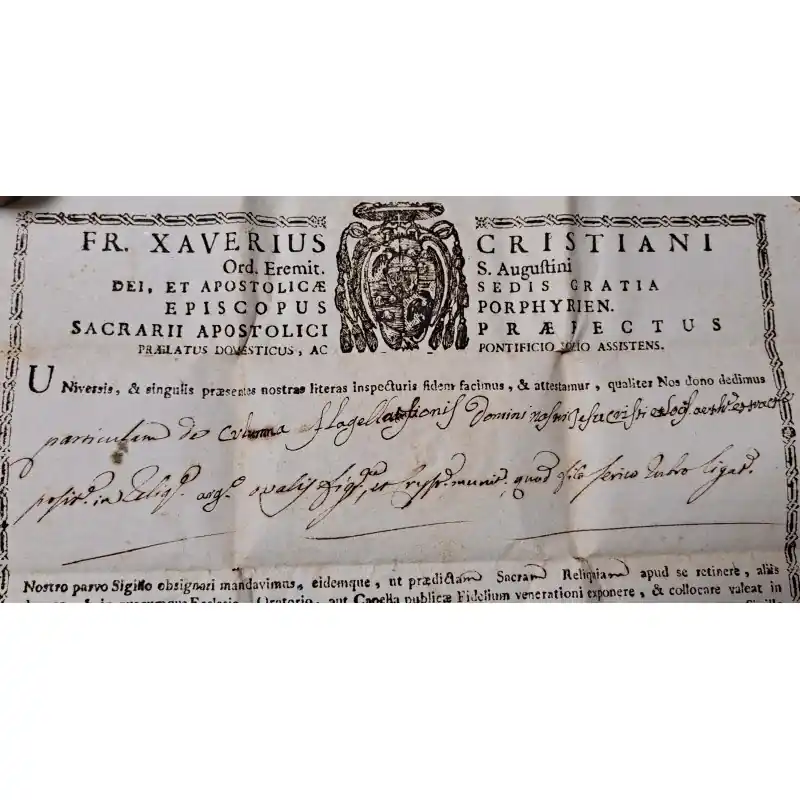 FR. XAVERIUS CRISTIANI
Ord. Eremit. S. Auguſtini
DEI, ET APOSTOLICÆ SEDIS GRATIA
EPISCOPUS PORPHYRIEN.
SACRARII APOSTOLICI PRÆFECTUS
PRÆLATUS DOMESTICUS, AC PONTIFICIO SOLIO ASSISTENS.
UNiverſis, & ſingulis præſentes noſtras literas inſpecturis fidem facimus, & atteſtamur, qualiter Nos dono dedimus
particulam de Columna flagellationis Domini nostri Jesu Cristi
posit. in Reliq. arg. ovalis fig. et crystr. munit. quod filo serico rubro ligat.
Noſtro parvo Sigillo obſignari mandavimus, eidemque, ut prædictam Sacram Reliquiam apud ſe retinere, aliis
in quacumque Eccleſia, Oratorio, aut Capella publicæ Fidelium venerationi exponere, & collocare valeat in